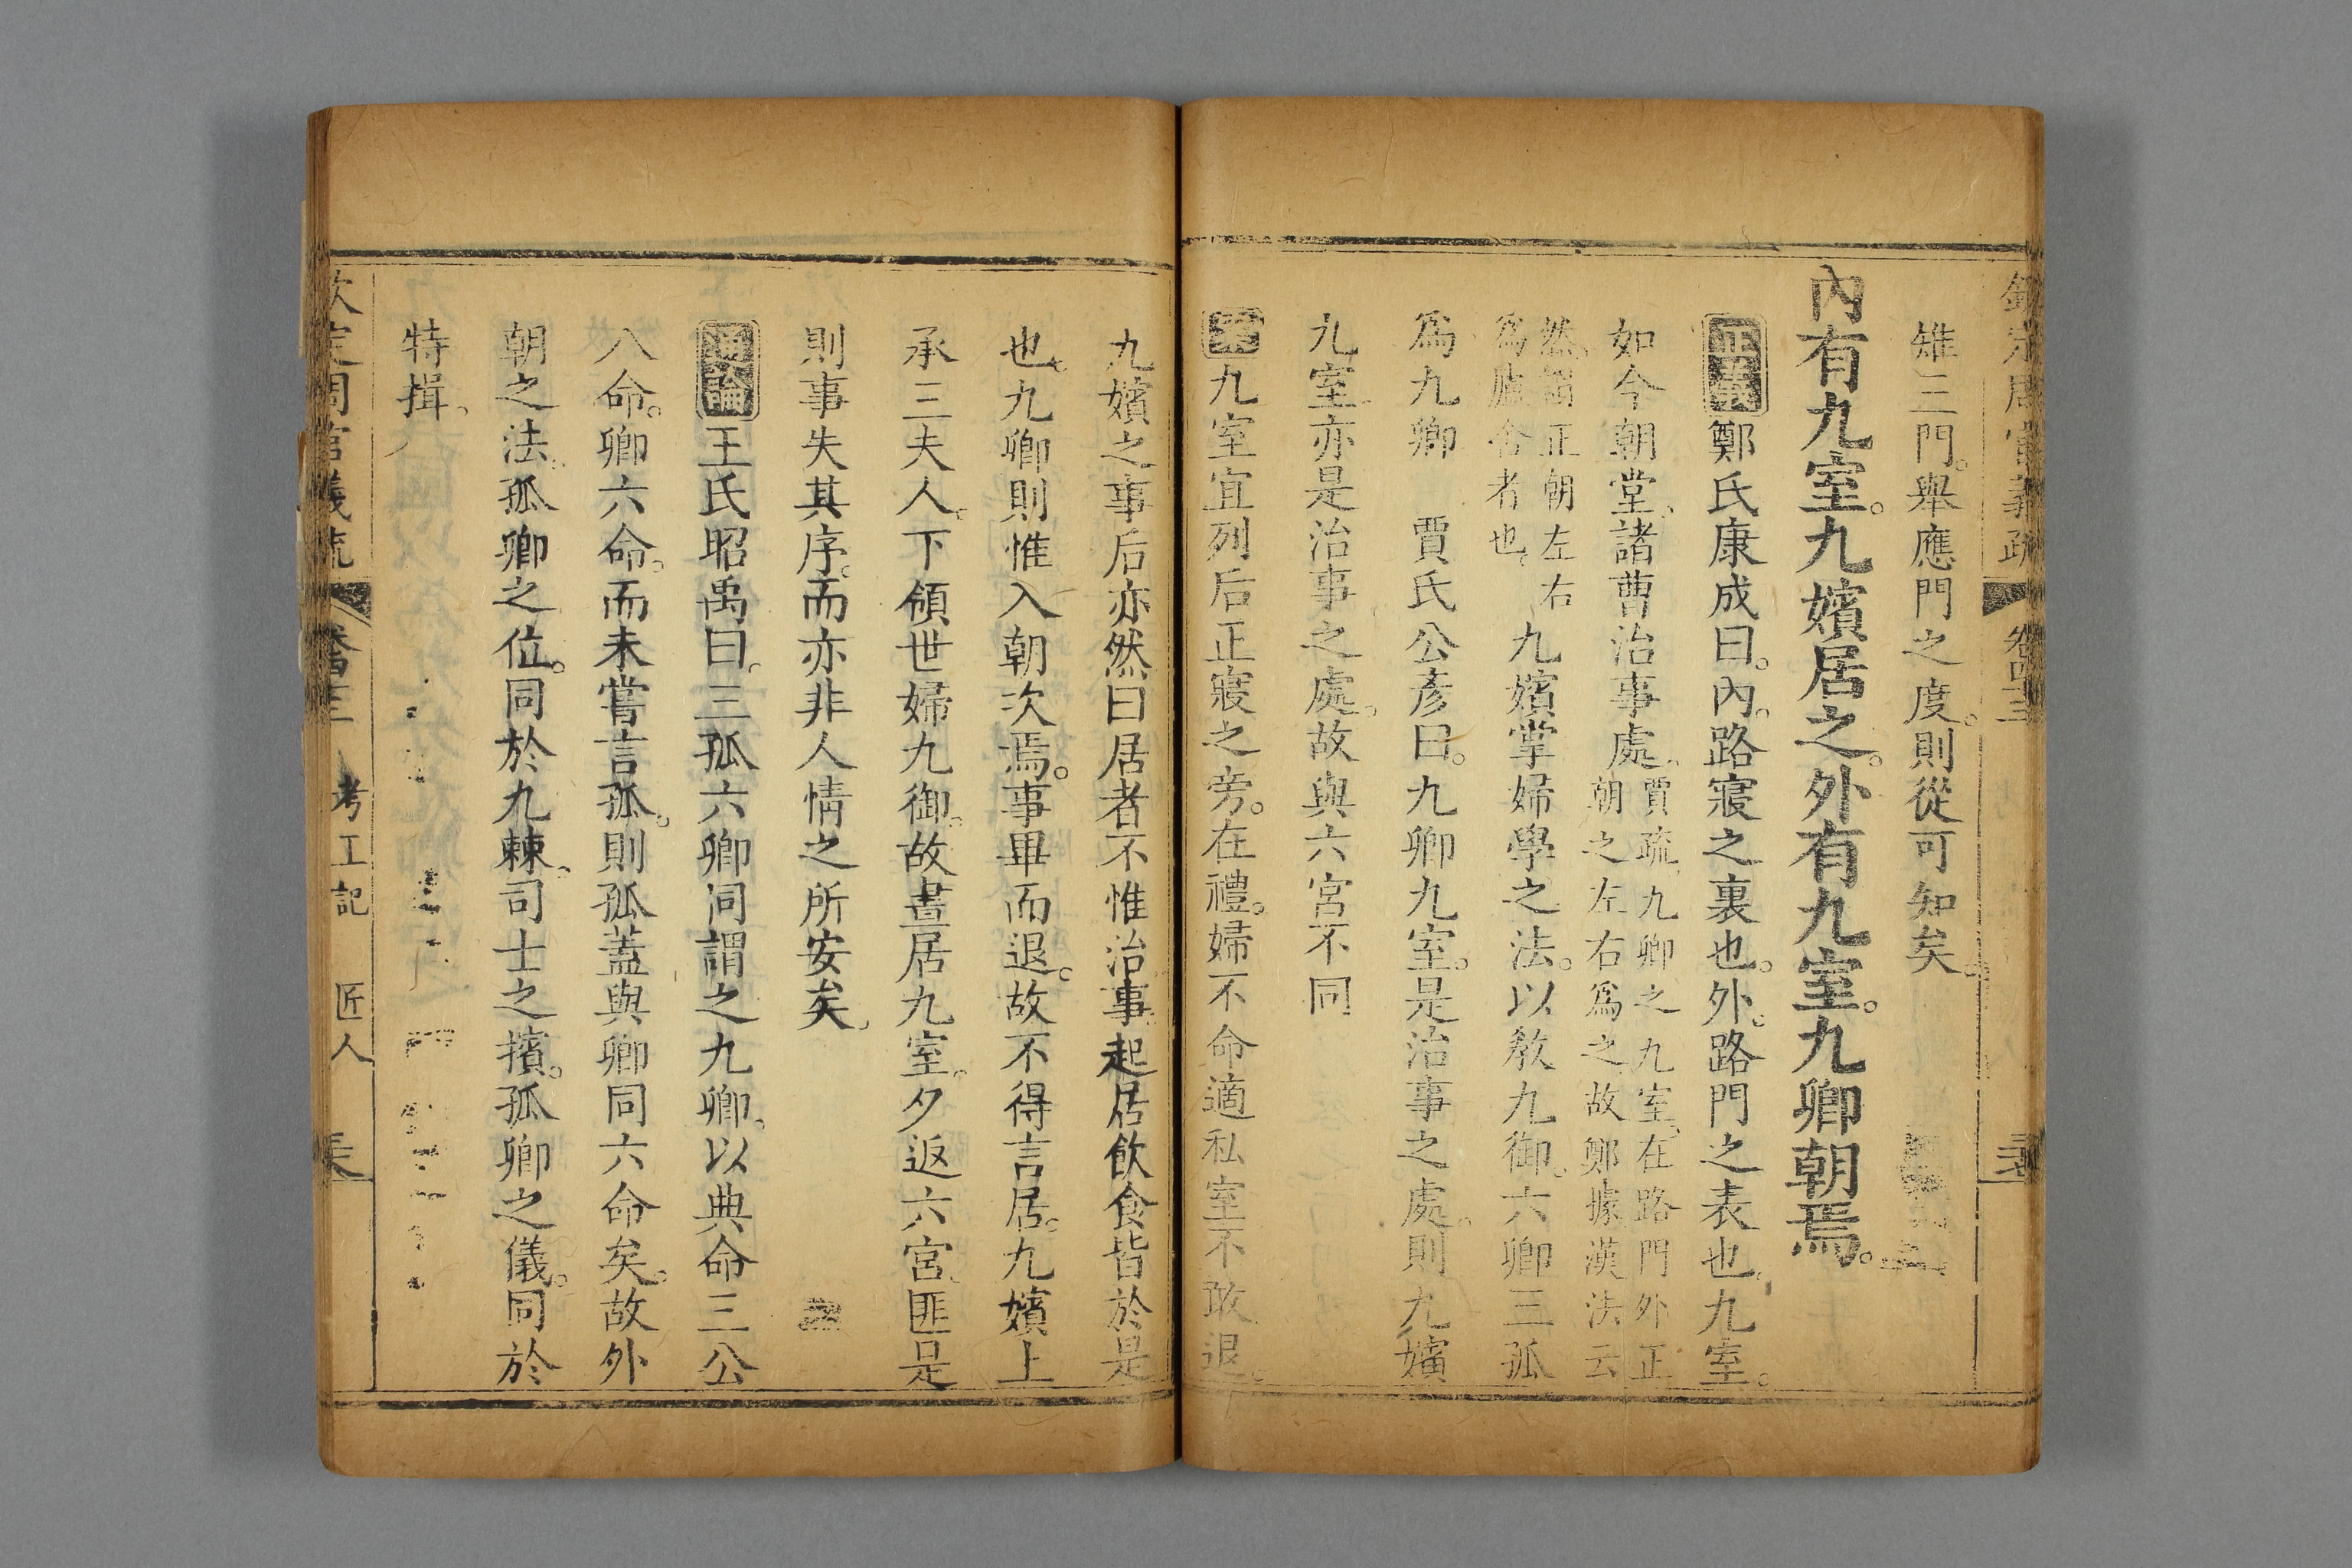 欽定周官義疏 卷四十三
雉三門。舉應門之度。則從可知矣。
內有九室。九嬪居之。外有九室。九卿朝焉。
正義鄭氏康成曰。內。路寢之裏也。外。路門之表也。九室。
如今朝堂。諸曹治事處。賈疏。九卿之九室。在路門外正
朝之左右爲之。故鄭據漢法云
然。謂正朝左右
爲廬舍者也。九嬪掌婦學之法。以敎九御。六卿三孤
爲九卿 賈氏公彥曰。九卿九室。是治事之處。則九嬪
九室亦是治事之處。故與六宮不同
案九室宜列后正寢之旁。在禮。婦不命適私室不敢退。
九嬪之事后亦然曰居者不惟治事。起居飲食皆於是
也。九卿則惟入朝次焉。事畢而退。故不得言居。九嬪上
承三夫人。下領世婦九御。故晝居九室。夕返六宮。匪是
則事失其序。而亦非人情之所安矣。
通論王氏昭禹曰。三孤六卿同謂之九卿。以典命三公
八命。卿六命。而未嘗言孤。則孤蓋與卿同六命矣。故外
朝之法。孤卿之位。同於九棘。司士之擯。孤卿之儀。同於
特揖。
欽定周官義疏 卷四十三 考工記 匠人